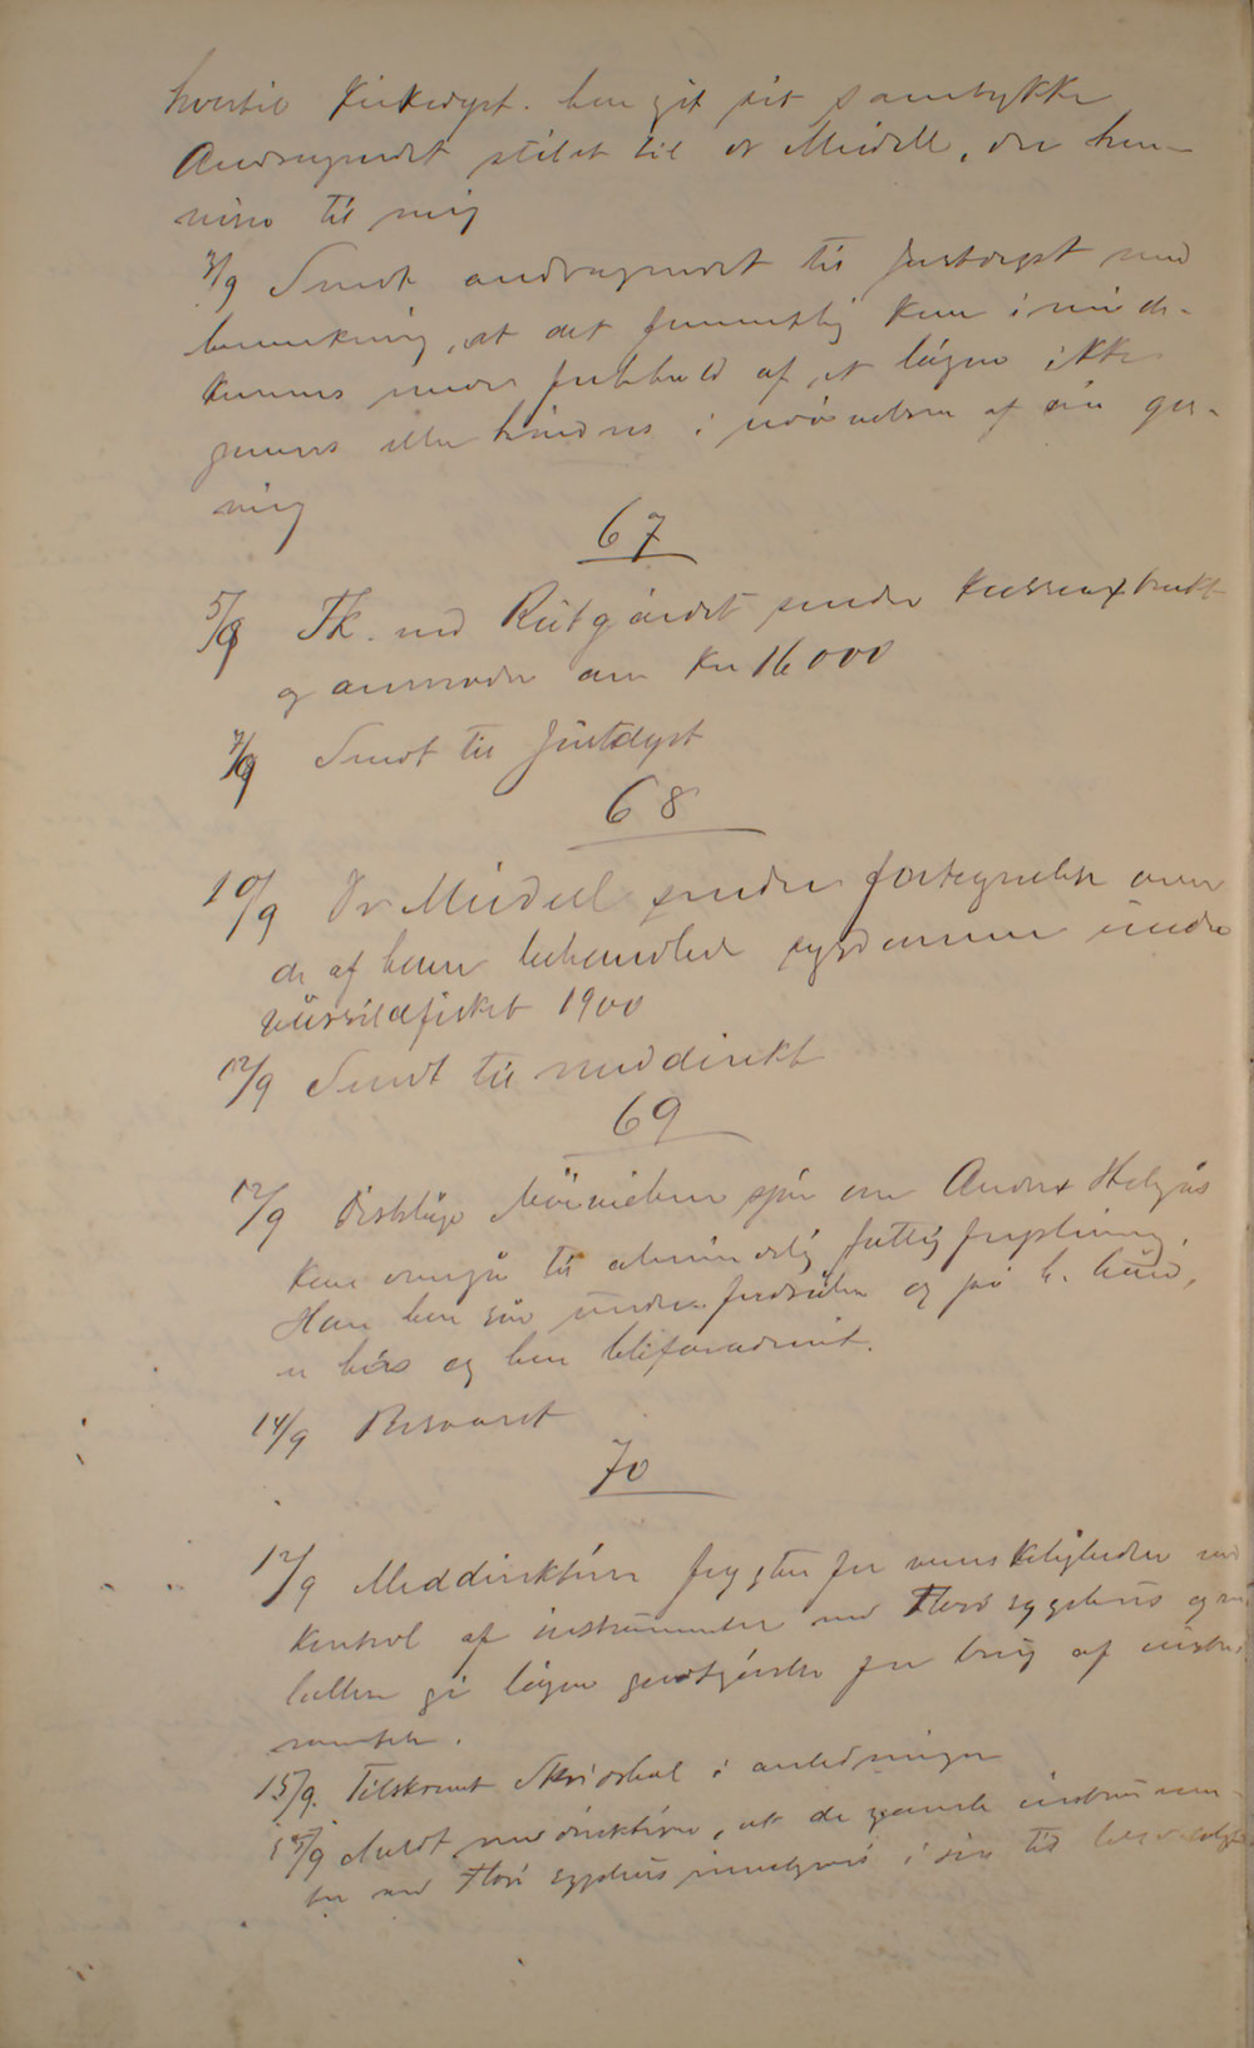 hvortil Kirkedept. har git sit samtykke
Andragendet stilet til dr Meidell, der hen-
viser til mig
3/9 Sendt andragendet til Justdept med
bemerkning, at det formentlig kun i
kunne under forbehold af, at lægen ikke
eller hindres i udøvelsen af sin ger-
ning
67
5/9 Tk. ved Reitgjærdet sender kasseextrakt
og anmoder om Kr 16000
7/9 Sendt til Justdept
68
10/9 Dr Meidell sender fortegnelse over
de af ham behandlede sygdomme under
vaarsildfisket 1900
12/9 Sendt til meddirekt
69
12/9 Distrlæge spør om Anders Helgås
kan overgå til almindelig fattigforpleining.
Han har sår under fodsålen og på h. hånd,
er hæs og har
14/9 Besvaret
70
12/9 Meddirektøren frygter for vanskeligheder ved
kontrol af instrumenter ved Florø sygehus og vil
hellere gi lægen godtgjørelse for brug af instru-
menter.
15/9. Tilskrevet i anledningen
Meldt meddirektøren, at de gamle instrumen-
ter ved Florø sygehus i sin tid